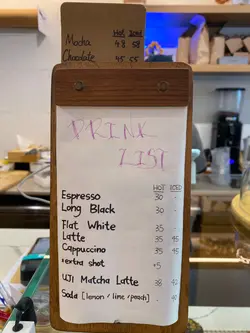 HOT ICED
Mocha 48 58
Chocolate 45 55
DRINK
LIST
HOT ICED
Espresso 30 -
Long Black 30 -
Flat White 35 -
Latte 35 45
Cappuccino 35 45
+extra shot +5
UJI Matcha Latte 38 42
Soda [lemon / lime / peach] . 40